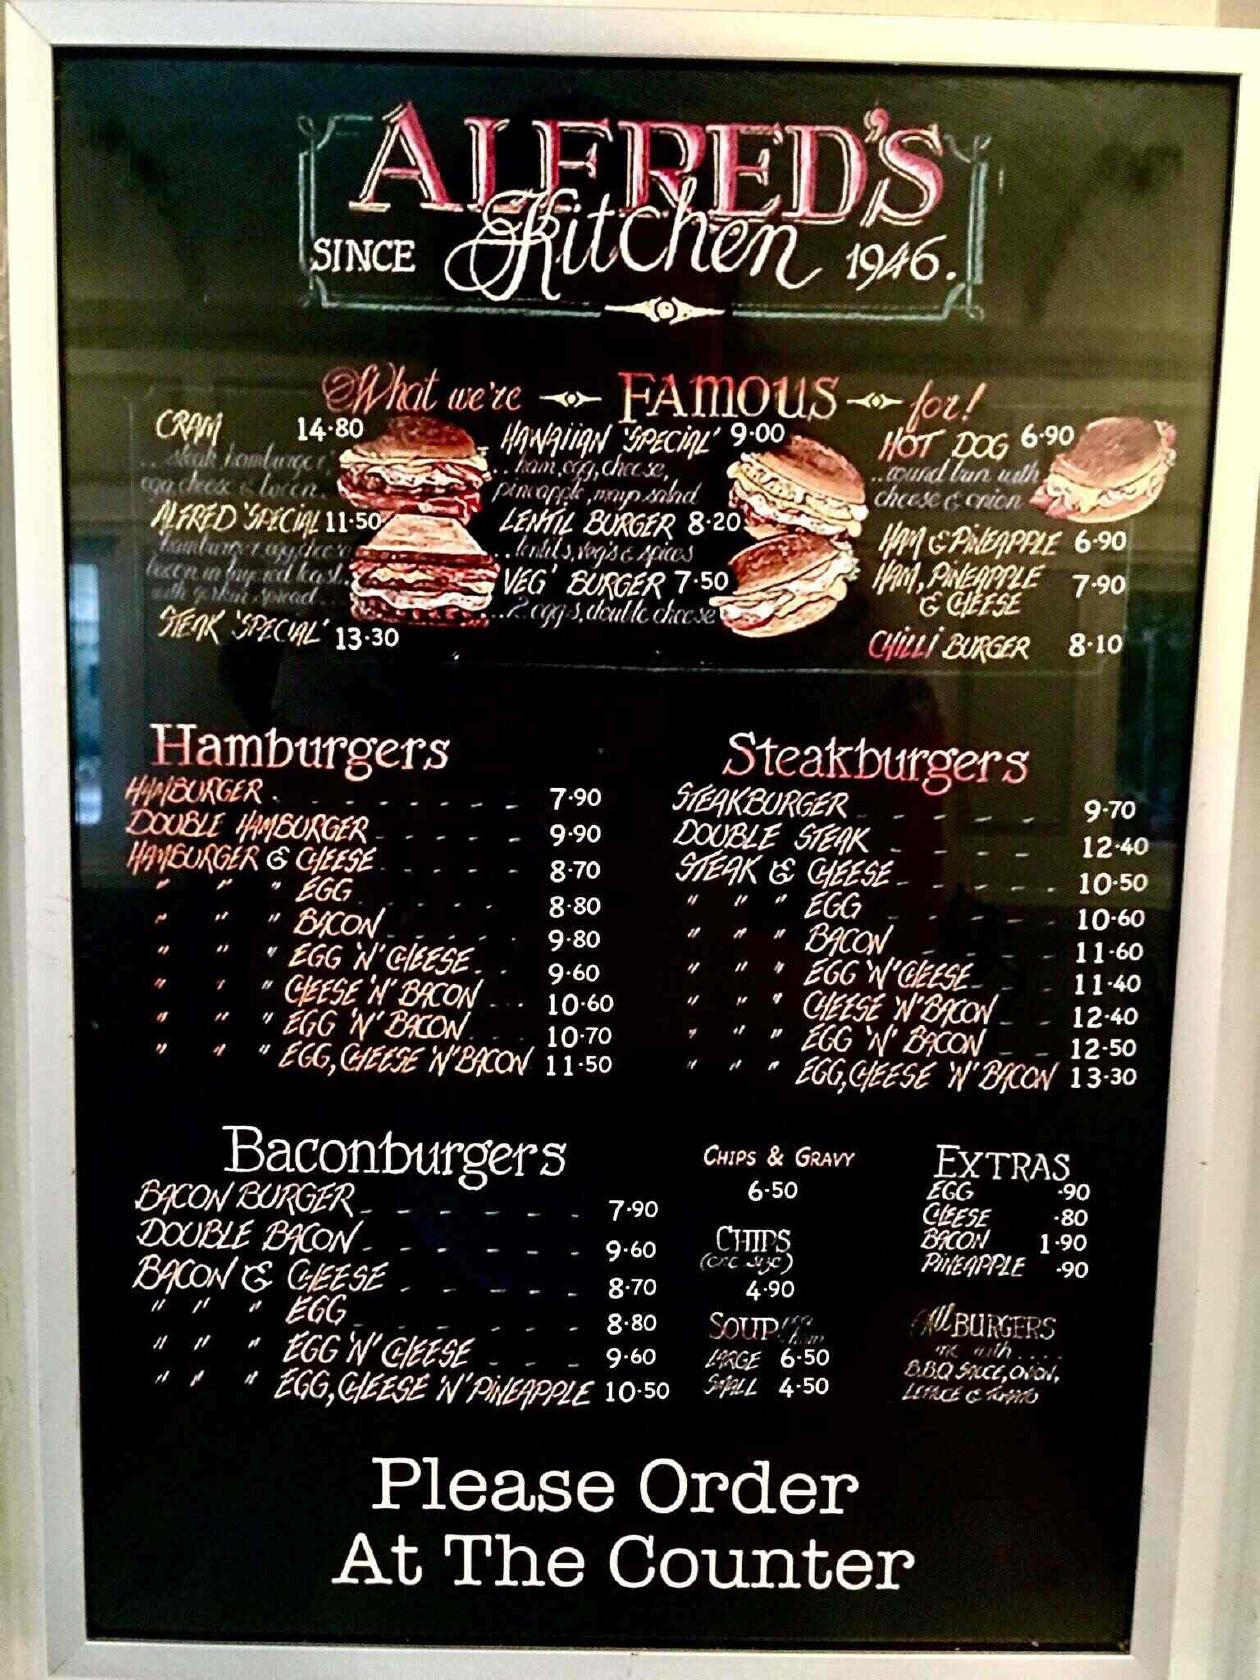 ALFRED'S
Kitchen
SINCE 1946.
What we're FAMOUS for!
CRAM 14·80
... steak hamburger,
egg cheese & bacon.
ALFRED 'SPECIAL' 11·50
hamburger egg cheese
bacon in toast
with spread...
STEAK 'SPECIAL' 13·30
HAWAIIAN 'SPECIAL' 9·00
...ham, egg, cheese,
pineapple, mayo salad
LENTIL BURGER 8·20
...lentils, veg's & spices
VEG' BURGER 7·50
...2 eggs, double cheese
HOT DOG 6·90
..round bun with
cheese & onion
HAM & PINEAPPLE 6·90
HAM, PINEAPPLE
& CHEESE 7·90
CHILLI BURGER 8·10
Hamburgers
HAMBURGER 7·90
DOUBLE HAMBURGER 9·90
HAMBURGER & CHEESE 8·70
" " " EGG 8·80
" " " BACON 9·80
" " " EGG 'N' CHEESE 9·60
" " " CHEESE 'N' BACON 10·60
" " " EGG 'N' BACON 10·70
" " " EGG, CHEESE 'N' BACON 11·50
Steakburgers
STEAKBURGER 9·70
DOUBLE STEAK 12·40
STEAK & CHEESE 10·50
" " " EGG 10·60
" " " BACON 11·60
" " " EGG 'N' CHEESE 11·40
" " " CHEESE 'N' BACON 12·40
" " " EGG 'N' BACON 12·50
" " " EGG, CHEESE 'N' BACON 13·30
Baconburgers
BACON BURGER 7·90
DOUBLE BACON 9·60
BACON & CHEESE 8·70
" " " EGG 8·80
" " " EGG 'N' CHEESE 9·60
" " " EGG, CHEESE 'N' PINEAPPLE 10·50
CHIPS & GRAVY
6·50
CHIPS
(one size)
4·90
SOUP
LARGE 6·50
SMALL 4·50
EXTRAS
EGG ·90
CHEESE ·80
BACON 1·90
PINEAPPLE ·90
All BURGERS
inc with....
B.B.Q SAUCE, ONION,
LETTUCE & TOMATO
Please Order
At The Counter